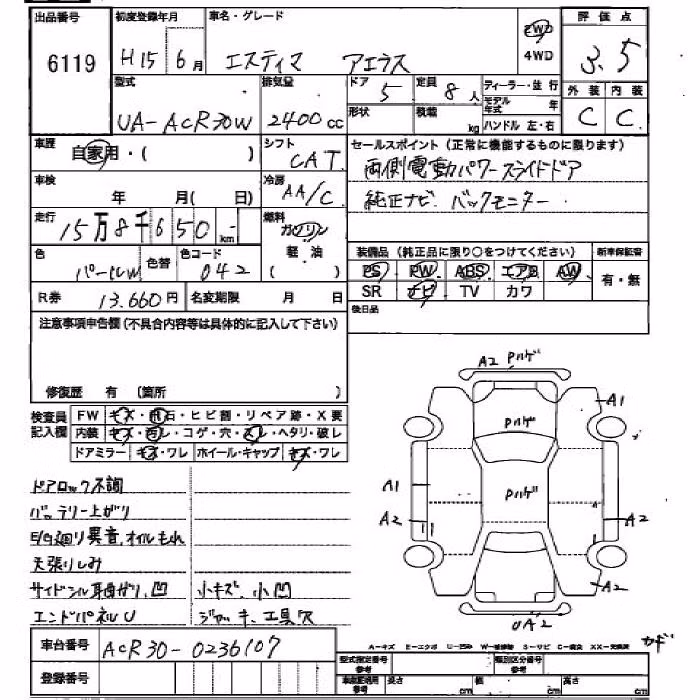 出品番号 初度登録年月 車名・グレード 評価点
6119 H15年6月 エスティマ アエラス 2WD 4WD 3.5
型式 排気量 ドア 5 定員 8人 ディーラー・並行 外装 内装
UA-ACR30W 2400cc 形状 積載 kg モデル年式 年 ハンドル 左・右 C C
車歴 自家用・( ) シフト CAT セールスポイント(正常に機能するものに限ります)
両側電動パワースライドドア
車検 年 月( 日) 冷房 AA/C 純正ナビ. バックモニター
走行 15万8千650km 燃料 ガソリン 軽・油 ( )
色 パールW 色替 色コード 042 装備品(純正品に限り○をつけてください) 新車保証書
PS PW ABS エアB AW 有・無
R券 13,660円 名変期限 月 日 SR ナビ TV カワ
注意事項申告欄(不具合内容等は具体的に記入して下さい) 後日品
修復歴 有 (箇所 )
検査員記入欄 FW キズ・飛石・ヒビ割・リペア跡・X要
内装 キズ・汚レ・コゲ・穴・スレ・ヘタリ・破レ
ドアミラー キズ・ワレ ホイール・キャップ キズ・ワレ
A2 Pハゲ
A1
Pハゲ
A1 Pハゲ
A2 A2
A2
UA2
ドアロック不調
バッテリー上がり
E/G廻り異音.オイルもれ
天張りしみ
サイドシル耳曲がり.凹 小キズ.小凹
エンドパネルU ジャッキ.工具欠
車台番号 ACR30-0236107
A-キズ E-エクボ U-凹み W-補修跡 S-サビ C-腐食 XX-交換済
登録番号 型式指定番号 参考 類別区分番号 参考
車体証明用 参考 長さ cm 幅 cm 高さ cm